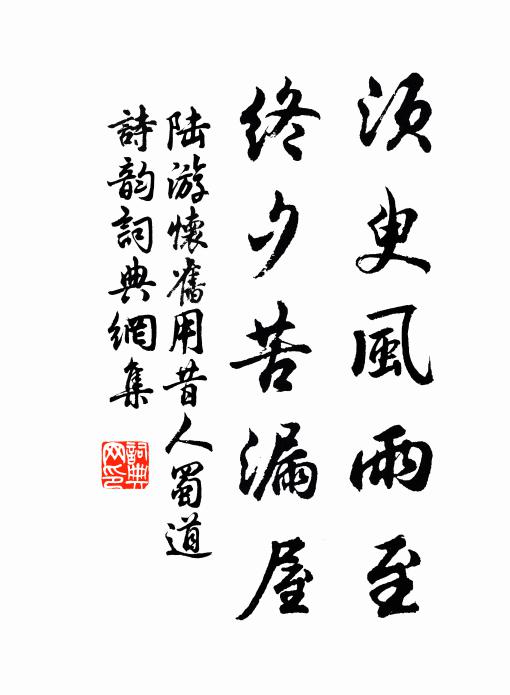 須臾風雨至
終夕苦漏屋
陆游懷舊用昔人蜀道
詩韵詞典網集
詞典
网印